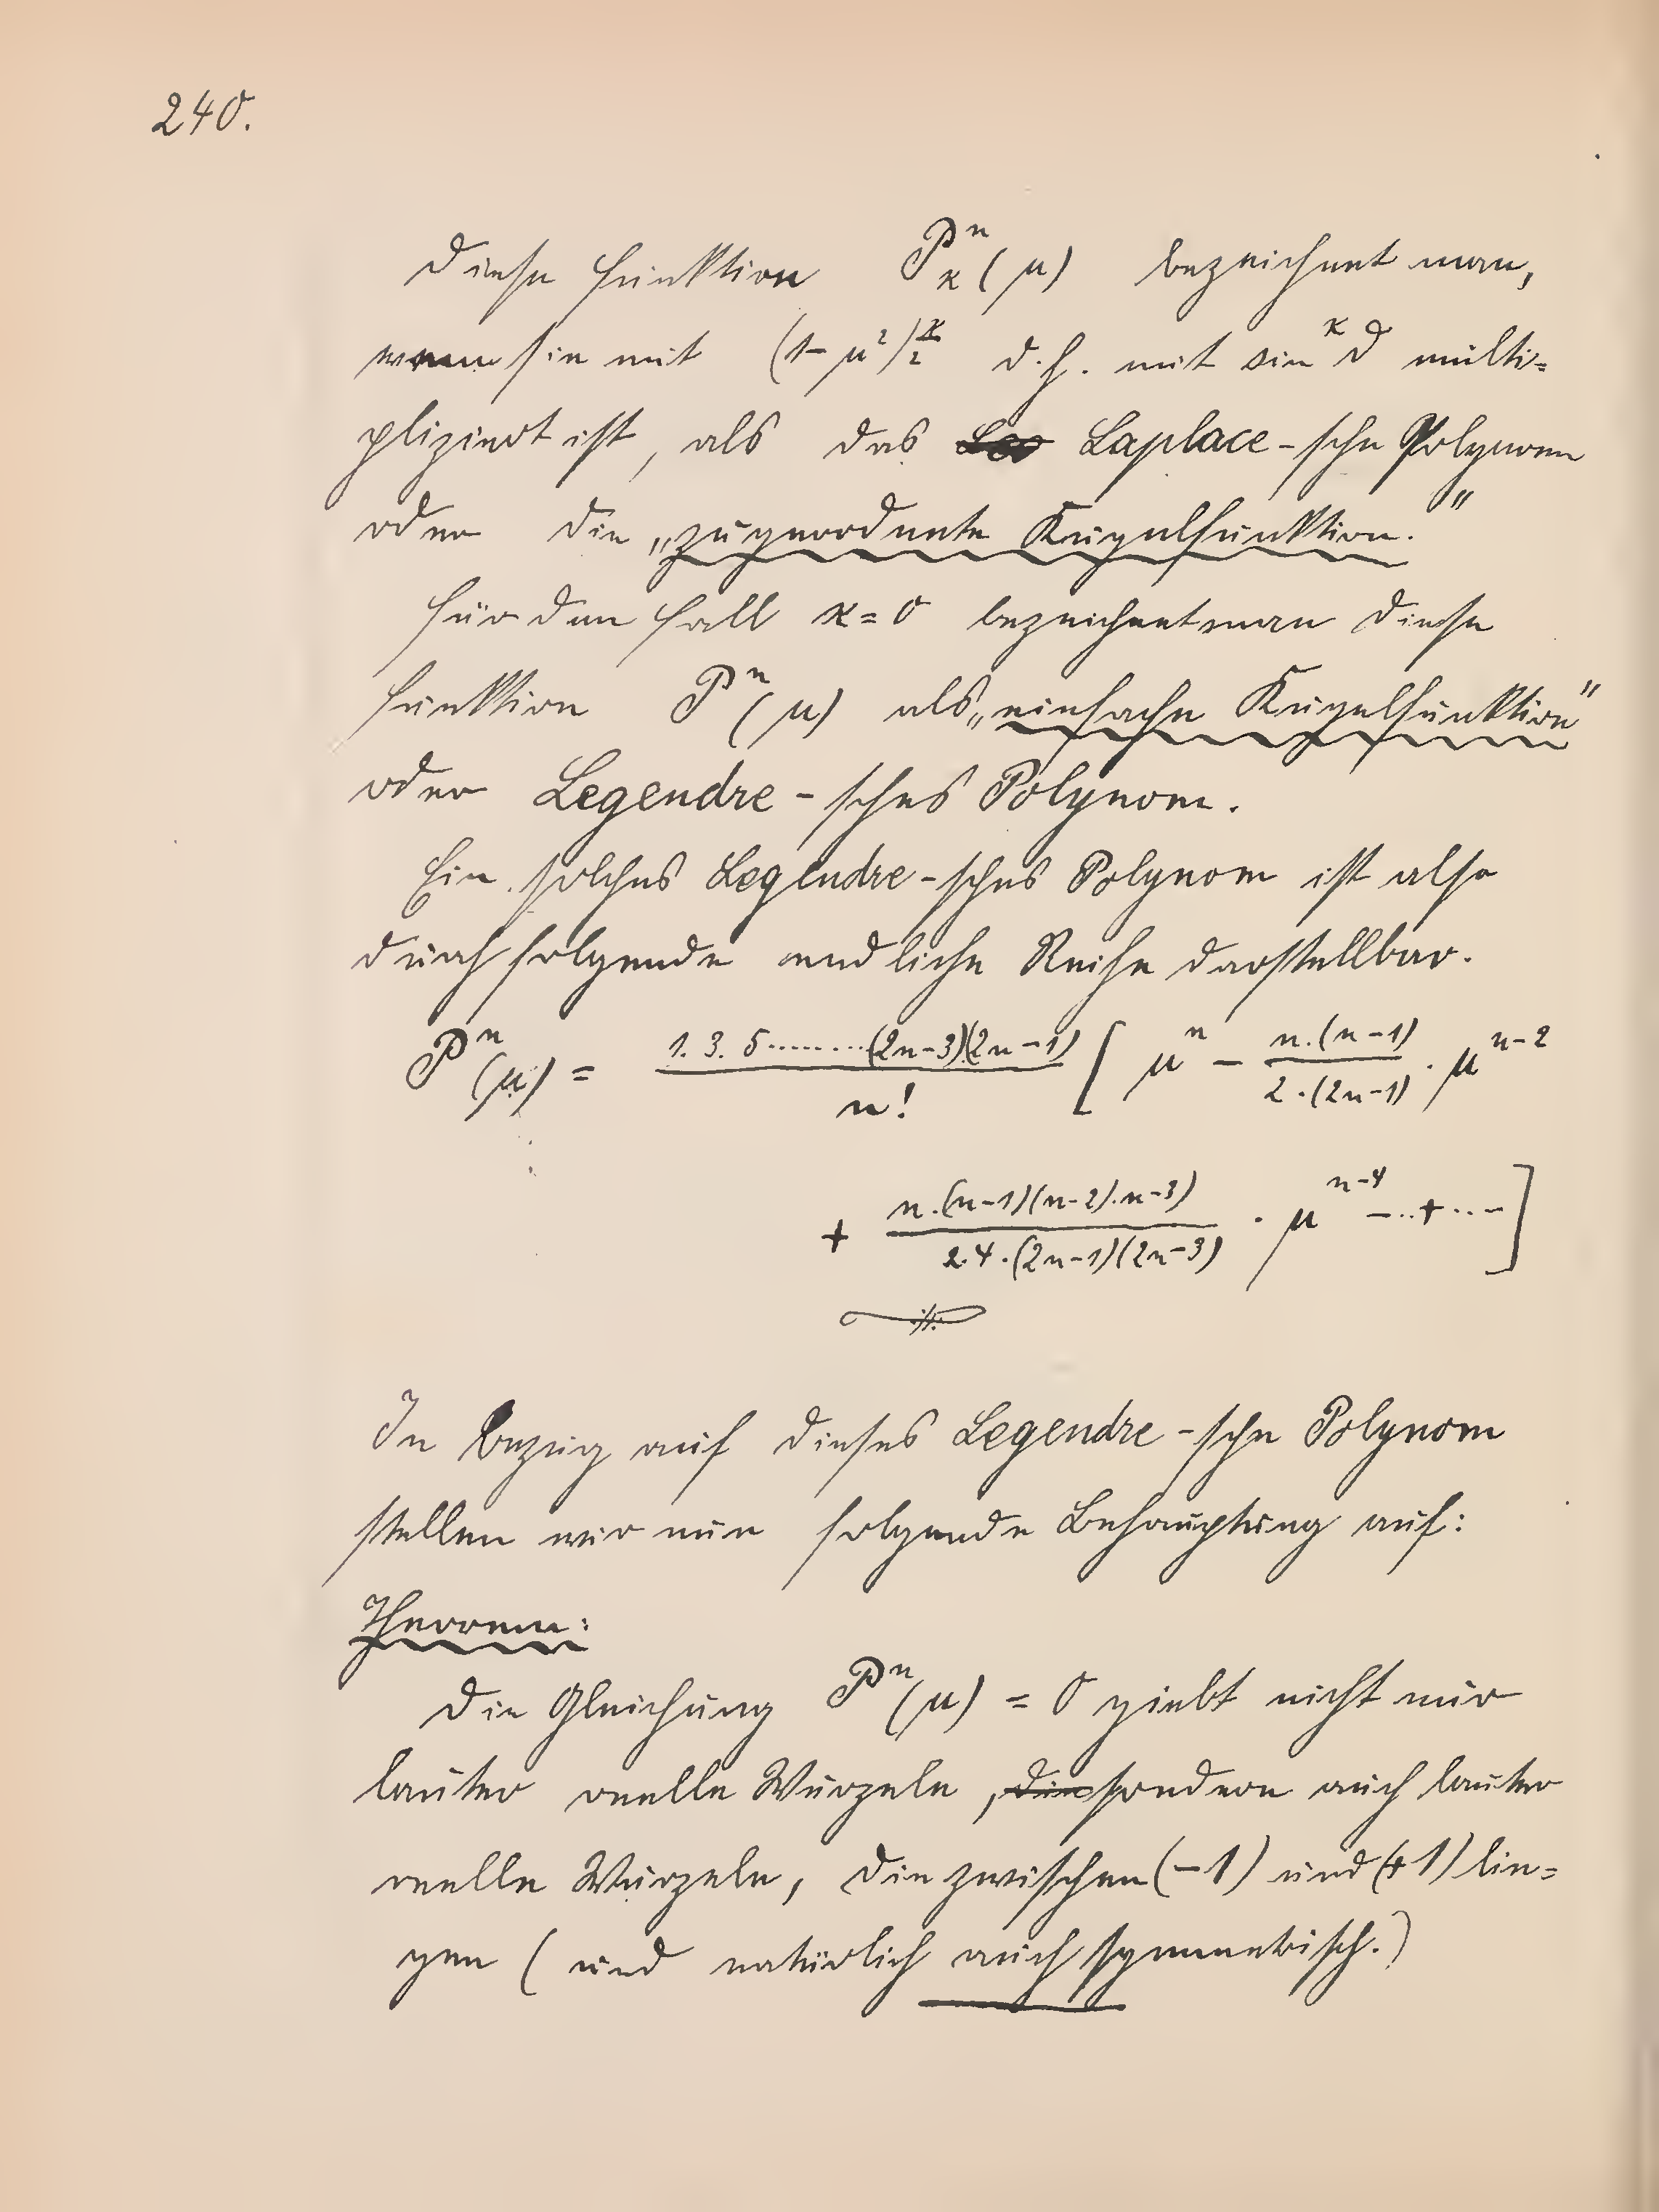 240.
Diese Funktion P^n_κ(μ) bezeichnet man,
wenn sie mit (1-μ²)^{κ/2} d.h. mit sin^κ ϑ multi=
pliziert ist, als das Laplace-sche Polynom
oder die „zugeordnete Kugelfunktion."
Für den Fall κ=0 bezeichnet man diese
Funktion P^n(μ) als „einfache Kugelfunktion"
oder Legendre-sches Polynom.
Ein solches Legendre-sches Polynom ist also
durch folgende endliche Reihe darstellbar.
P^n(μ) = \frac{1.3.5........(2n-3)(2n-1)}{n!} [ μ^n - \frac{n.(n-1)}{2.(2n-1)} · μ^{n-2}
+ \frac{n.(n-1)(n-2).n-3)}{2.4.(2n-1)(2n-3)} · μ^{n-4} -..+..- ]
In Bezug auf dieses Legendre-sche Polynom
stellen wir nun folgende Behauptung auf:
Theorem:
Die Gleichung P^n(μ) = 0 giebt nicht nur
lauter reelle Wurzeln, die sondern auch lauter
reelle Wurzeln, die zwischen (-1) und (+1) lie=
gen (und natürlich auch symmetrisch.)